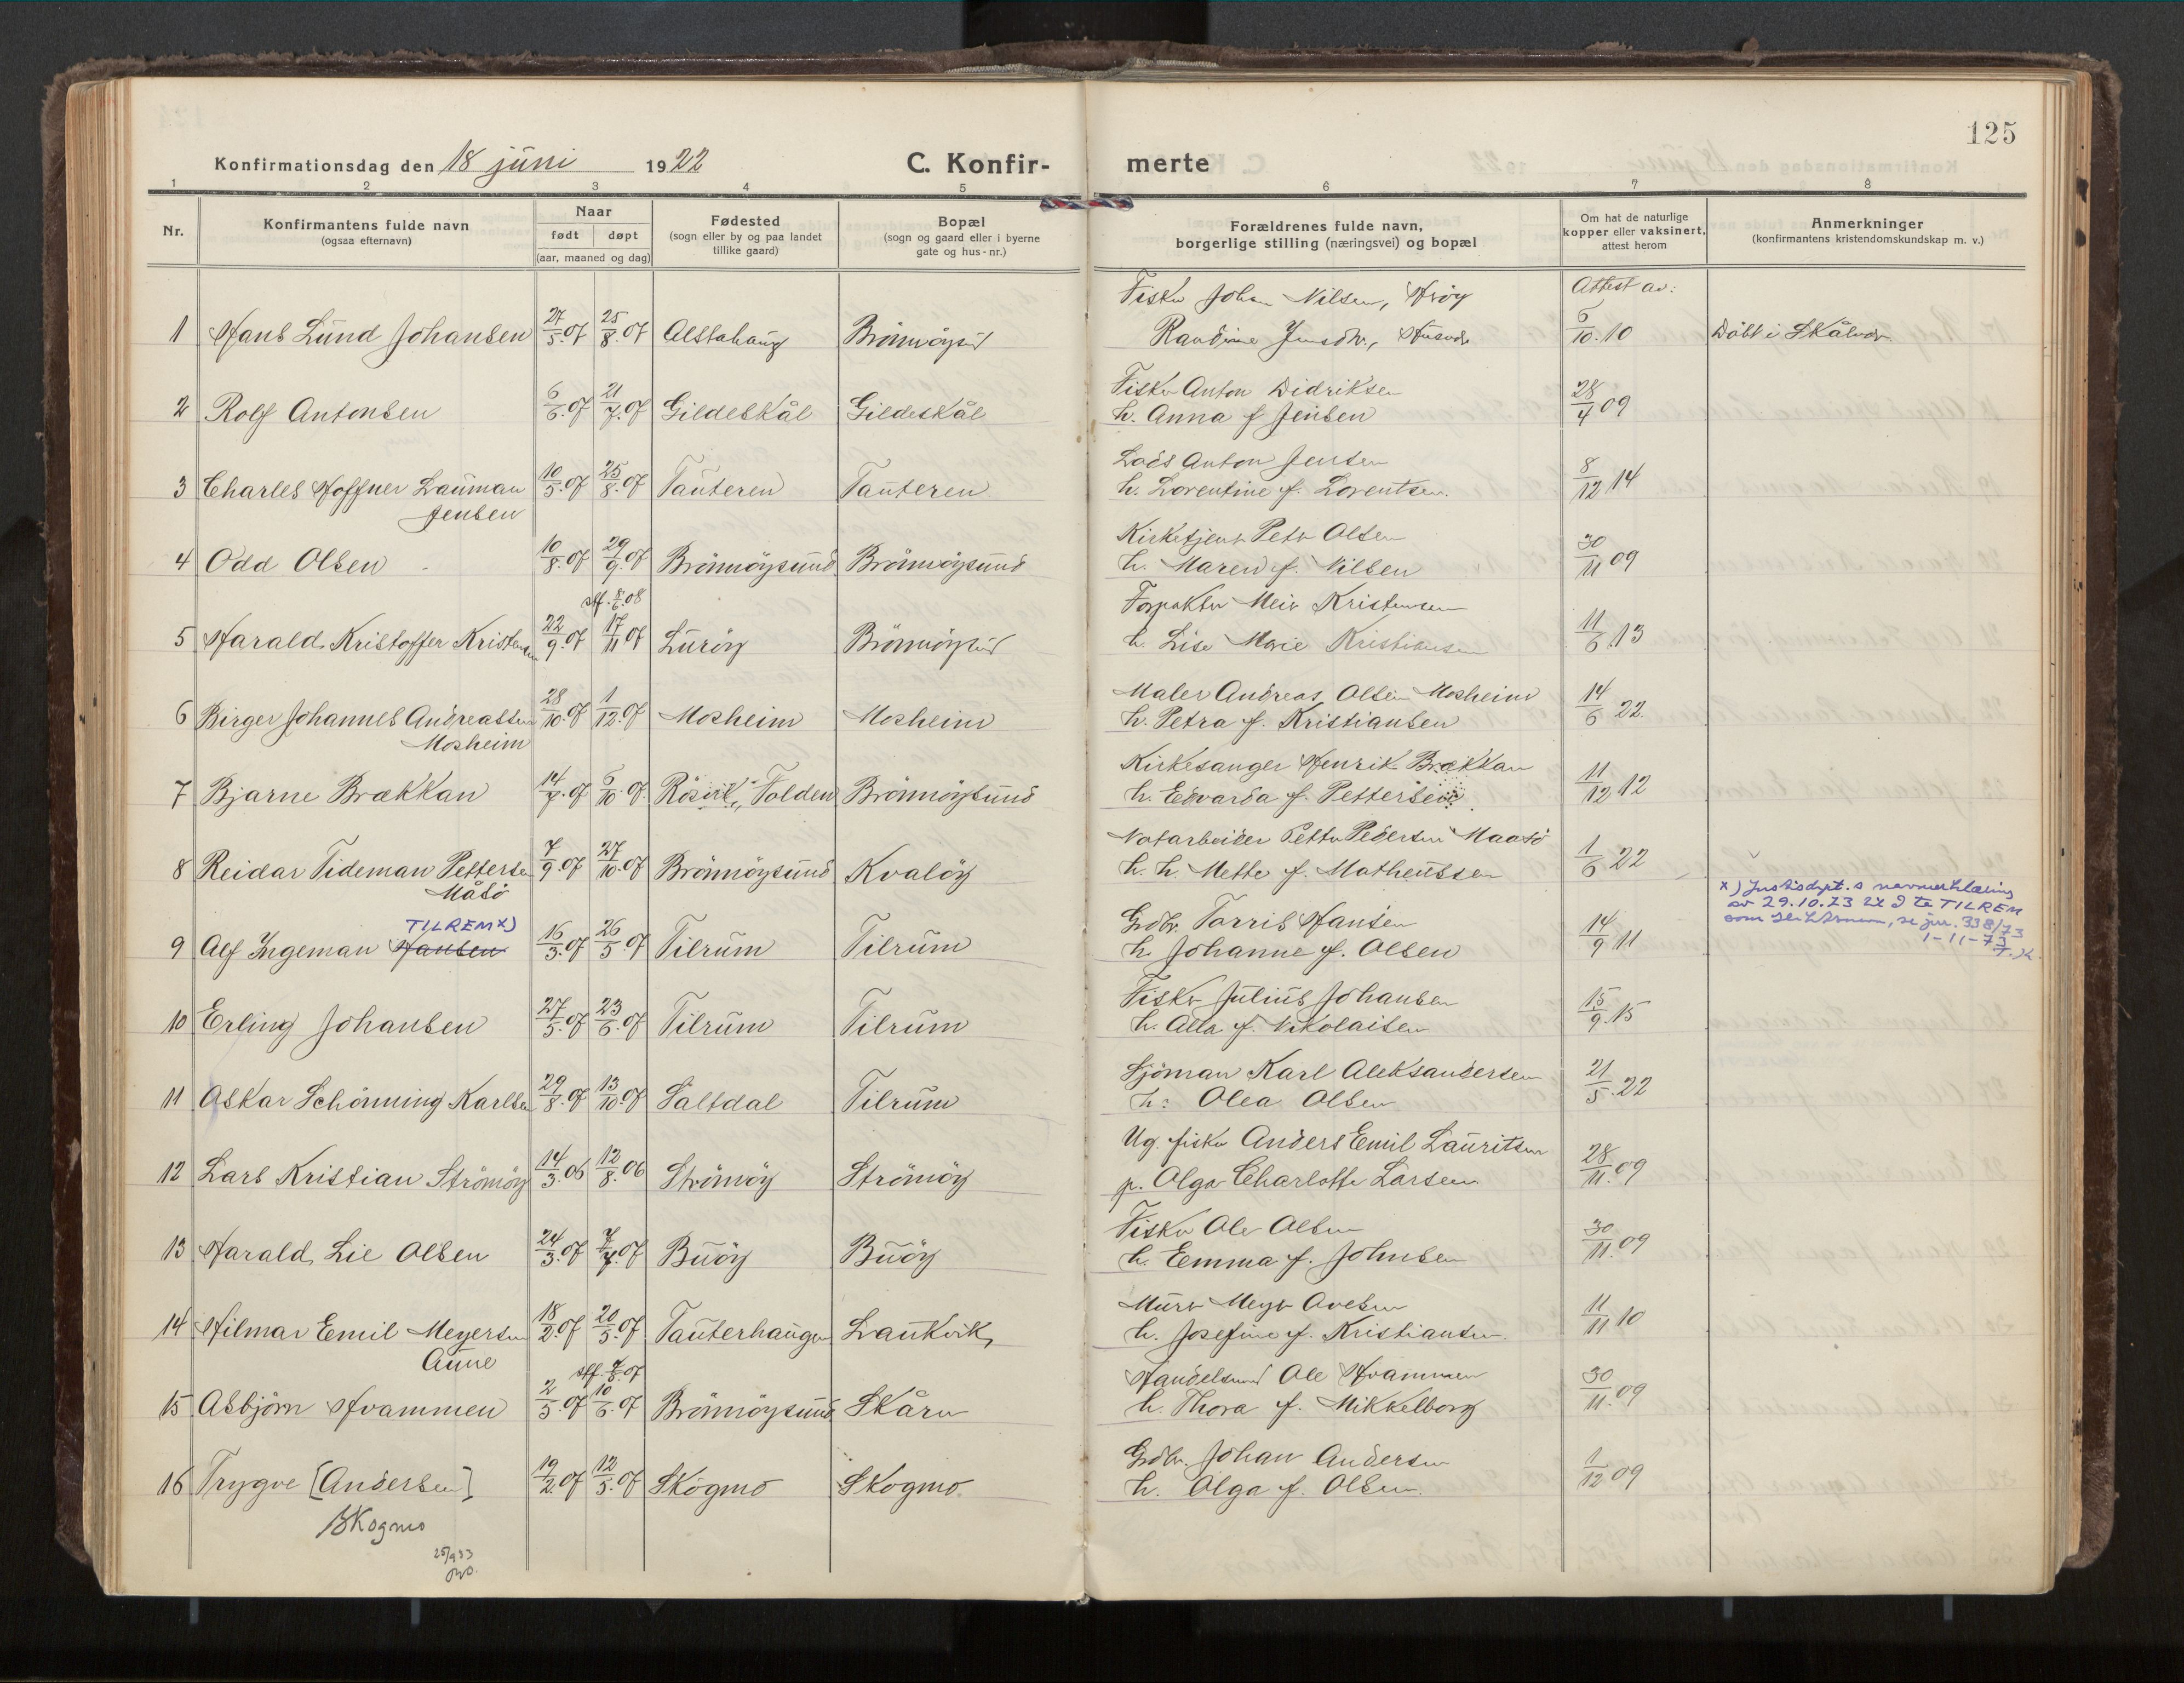 125
Konfirmationsdag den 18 juni 1922 C. Konfir- merte
1 2 3 4 5 6 7 8
Nr. Konfirmantens fulde navn (ogsaa efternavn) Naar født døpt (aar, maaned og dag) Fødested (sogn eller by og paa landet tillike gaard) Bopæl (sogn og gaard eller i byerne gate og hus-nr.) Forældrenes fulde navn, borgerlige stilling (næringsvei) og bopæl Om hat de naturlige kopper eller vaksinert, attest herom Anmerkninger (konfirmantens kristendomskundskap m. v.)
Fisker Johan Nilsen, Attest av:
1 Hans Lund Johansen 27/5.07 25/8.07 Alstahaug Brönnöysund Randine 6/10.10 Döbt i Skålvær
Fisker Anton Didriksen
2 Rolf Antonsen 6/6.07 21/7.07 Gildeskål Gildeskål h. Anna f Jensen 28/4 09
Lods Anton Jensen
3 Charles Hoffner Lauman 10/5.07 25/8.07 Tauteren Tauteren h. Lorentine f. Lorentsen. 8/12 14
Jensen
Kirketjener Peter Olsen
4 Odd Olsen 10/8.07 29/9.07 Brönnöysund Brönnöysund h. Maren f. Nilsen 30/11 09
stf. 8/6.08 Forpakter Meier Kristensen
5 Harald Kristoffer Kristensen 22/9.07 17/11 07 Luröy Brönnöysund h. Lise Marie Kristiansen 11/6.13
Maler Andreas Olsen Mosheim
6 Birger Johannes Andreassen 28/10.07 1/12.07 Mosheim Mosheim h. Petra f. Kristiansen 14/6 22.
Mosheim
Kirkesanger Henrik Brækkan
7 Bjarne Brækkan 14/7.07 6/10.07 Rösvik, Folden Brönnöysund h. Edvarda f. Pettersen. 11/12 12
Notarbeider Petter Pedersen Maasö
8 Reidar Tideman Pettersen 7/9.07 27/10.07 Brönnöysund Kvalöy h. h. Mette f. Matheussen 1/6 22
Måsö
x) Justisdept.s navneerklæring
av 29.10.73 TILREM
som slektsnavn, se jnr. 338/73
1-11-73
TILREM x) Grdbr. Torris Hansen
9 Alf Ingeman Hansen 16/3.07 26/5.07 Tilrum Tilrum h. Johanne f. Olsen 14/9 11
Fisker Julius Johansen
10 Erling Johansen 27/5.07 23/6.07 Tilrum Tilrum h. Alta f. Nikolaisen 15/9.15
Sjöman Karl Aleksandersen
11 Oskar Schönning Karlsen 29/8.07 13/10.07 Saltdal Tilrum h: Olea Olsen 21/5.22
Ug. fisker Anders Emil Lauritsen
12 Lars Kristian Strömöy 14/3.06 12/8.06 Strömöy Strömöy p. Olga Charlotte Larsen 28/11.09
Fisker Ole Olsen
13 Harald Lie Olsen 24/3.07 7/7.07 Buöy Buöy h. Emma f. Johnsen 30/11.09
Murer Meyer Ovesen
14 Hilmar Emil Meyersen 18/2.07 20/5.07 Tauterhaugen Laukvik, h. Josefine f. Kristiansen. 11/11 10
Aune
stf. 07 Handelsmand Ole Hvammen
15 Asbjörn Hvammen 2/5.07 10/6.07 Brönnöysund Skåren h. Thora f. Mikkelborg 30/11.09
Grdbr. Johan Andersen
16 Trygve [Andersen] 19/2.07 12/5.07 Skogmo Skogmo. h. Olga f. Olsen. 1/12 09
Skogmo
25/9 33